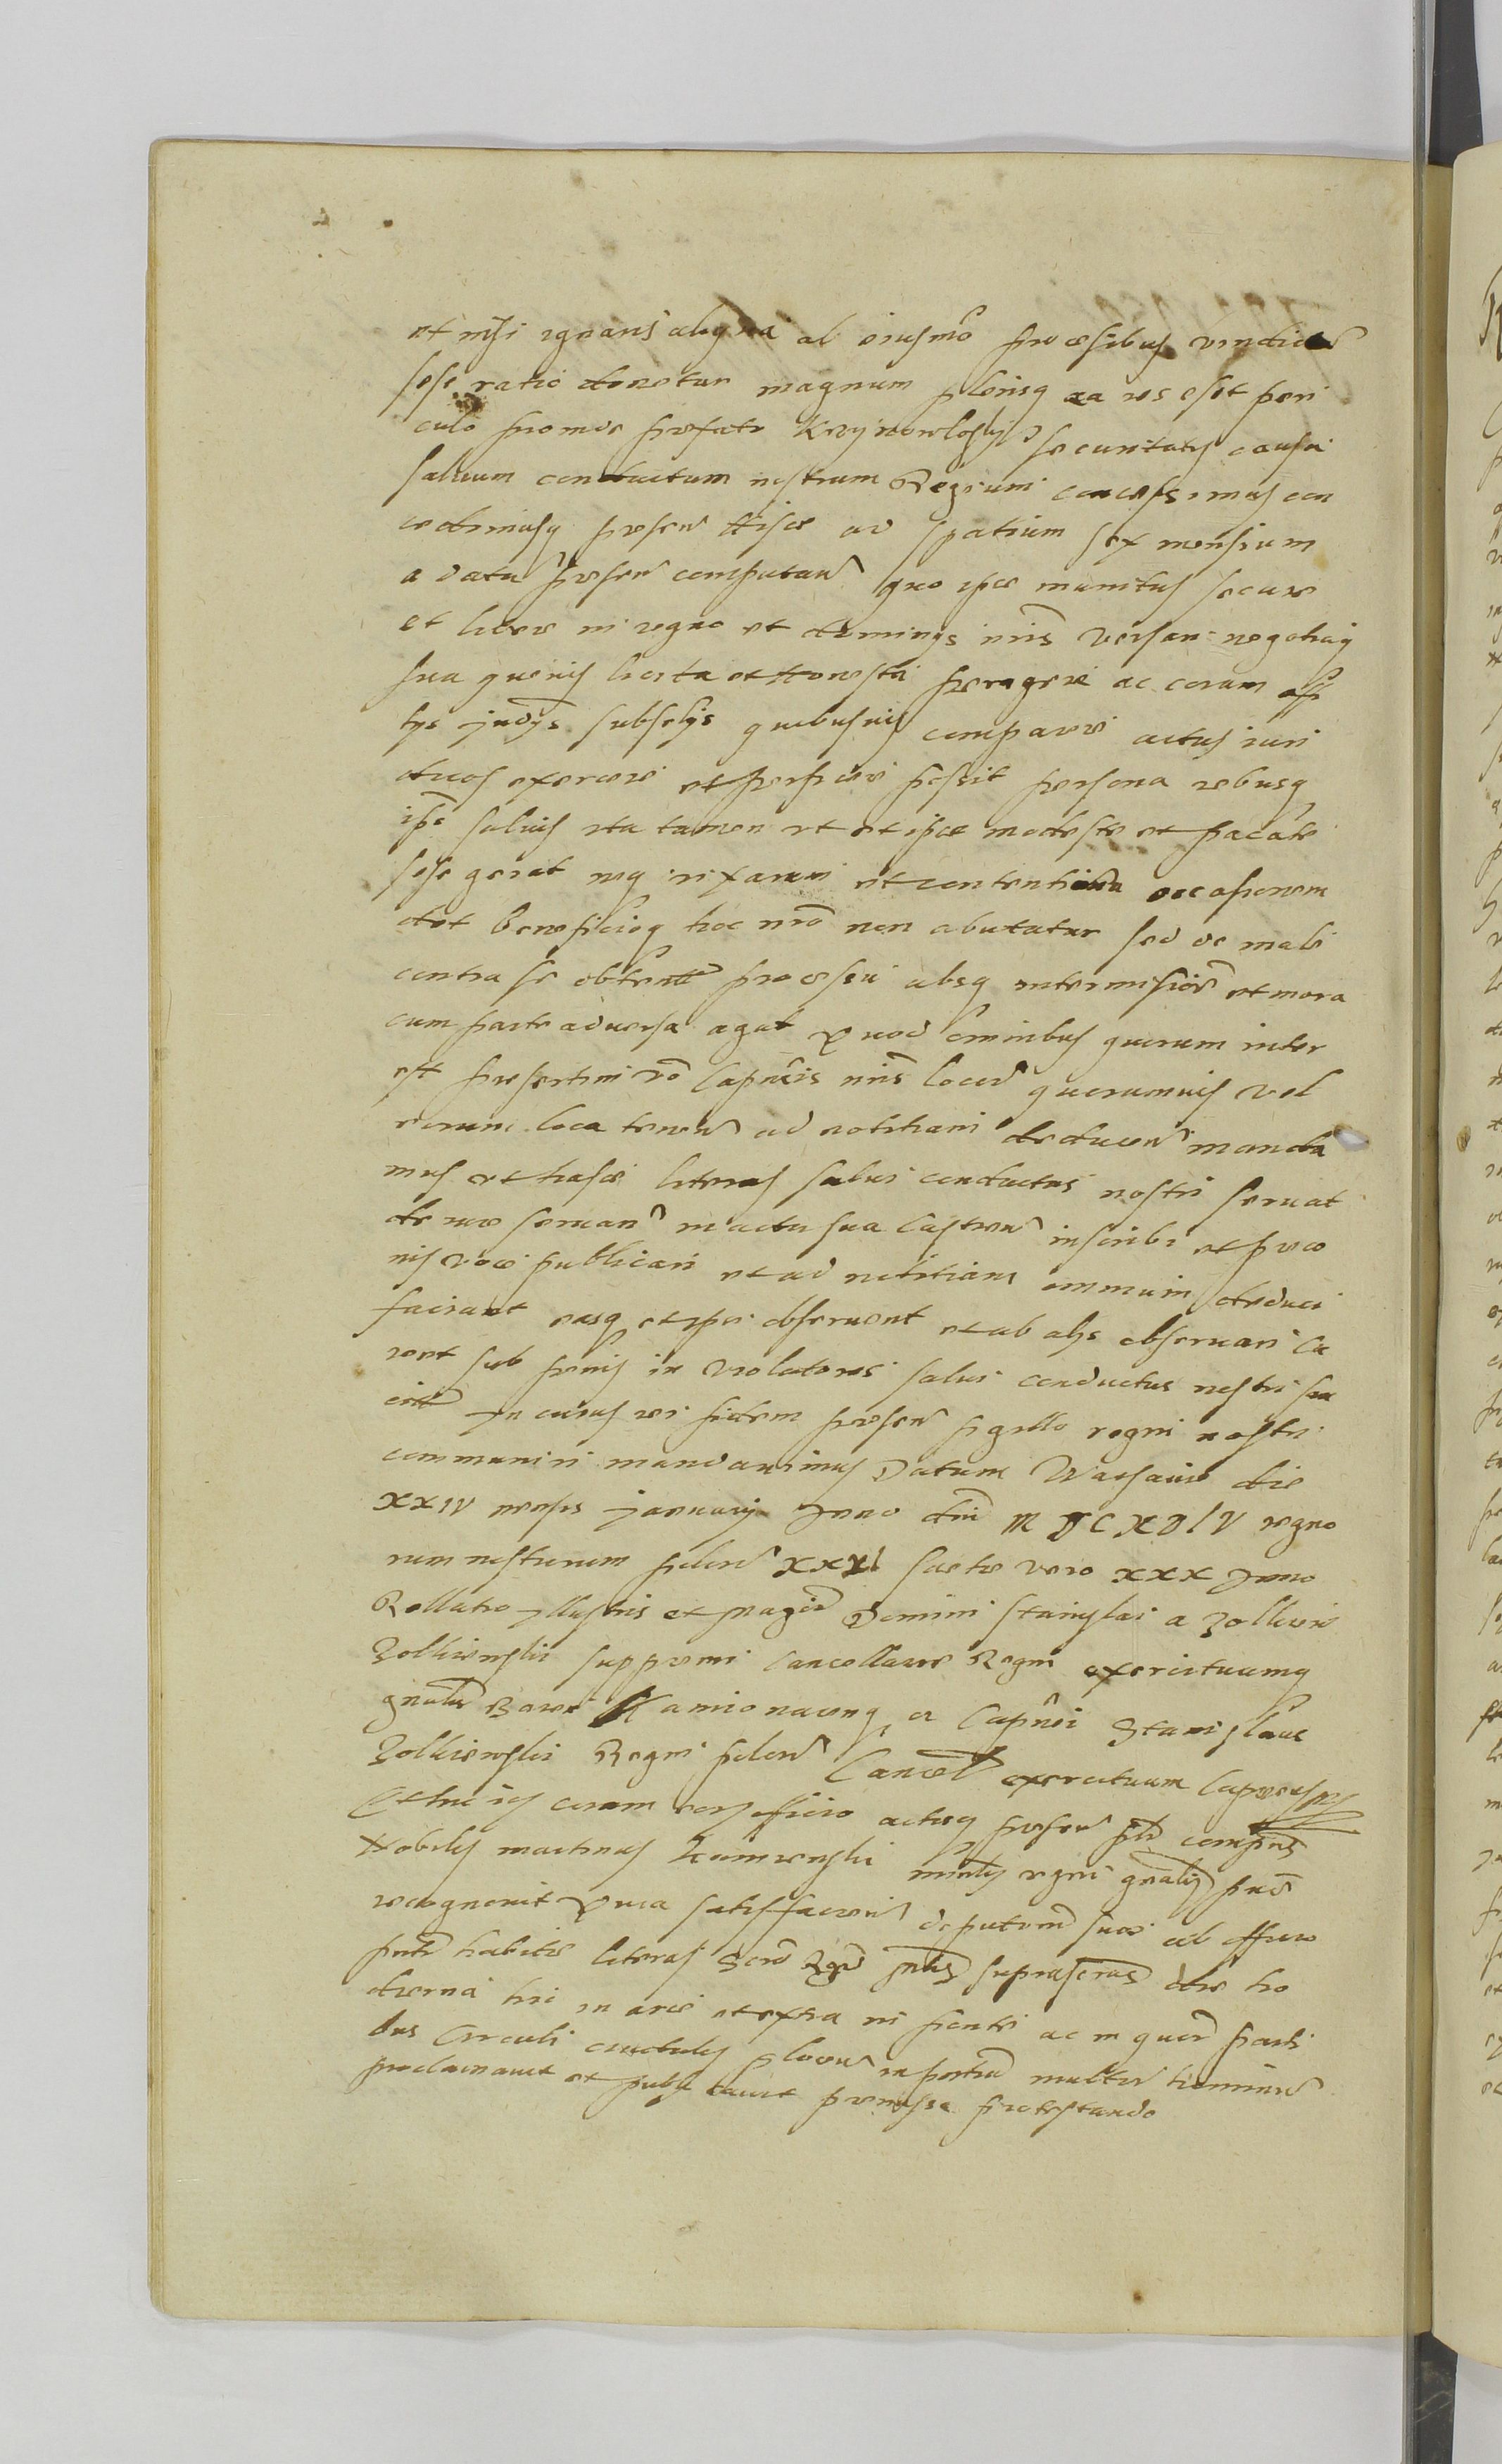 et nisi ignaris aliqua ab eiusmo processibus vindican
sese ratio donetur magnum plenisq ea res esset peri
culo proinde prefato securitatis causa
saluum conductum nostrum Regium concessimus con
cedimusq presen hisce ad spatium sex mensium
a datu presen computan quo ipse munitus secure
et libere in regno et dominijs nris versari negotiaq
sua queuis licita et honesta peragere ac coram
iudijs subselijs quibusuis comparere actus iuri
dicos exercere et perficere possit persona rebusq
ips saluis ita tamen ut et ipse modeste et pacate
sese gerat neq rixarum et contentionum occasionem
det beneficioq hoc nro non abutatur sed de male
contra se obtento processu absq intermissioe et mora
cum parte aduersa agat Quod omnibus quorum inter
est presertim vo Capneis nris locor quorumuis vel
eorum loca tenen ad notitiam deducen manda
mus ut hasce literas salui conductus nostri seruat
de iure seruan in acta sua Castren inscribi et preco
nis voce publicari et ad notitiam omnium deduci
faciant easq et ipsi obseruent et ab alijs obseruari cu
rent sub penis in violatores salui conductus nostri san
citis In cuius rei fidem presen sigillo regni nostri
communiri mandauimus Datum Warsauie die
XXIV mensis January Anno dni regno
rum nostrorum Polon XXXI Suetie vero XXX Anno
Rellatio Illustris et magci Domini Stanislai a Zolkiew
Zolkiewski suppremi Cancellarij Regni exercituumq
gnalis Baren Kamionacenq et Capnei Stanislaus
Zolkiewski Regni Polon Cancel exercituum
Et huc coram offficio actisq presen ptr comprns
Nobilis martinus regni gnalis
recognouit Quia satisfacien sue ab officio
habite literas suprascras die ho
dierna hic in arce et extra in ponte ac in quor parti
bus Circuli ciuitatis multor hominum
proclamauit et publicauit premissa protestando